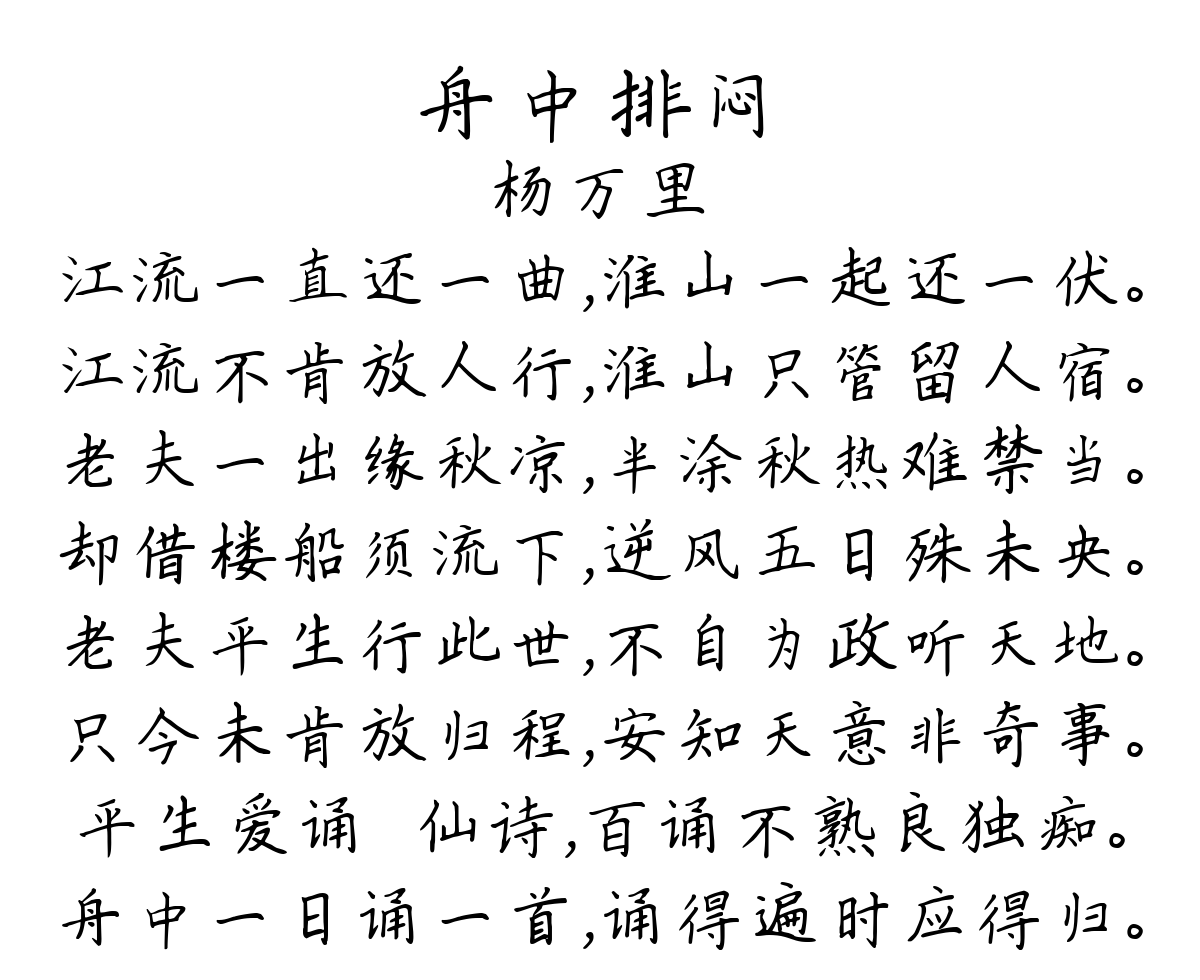 舟中排闷
杨万里
江流一直还一曲,淮山一起还一伏。
江流不肯放人行,淮山只管留人宿。
老夫一出缘秋凉,半涂秋热难禁当。
却借楼船须流下,逆风五日殊未央。
老夫平生行此世,不自为政听天地。
只今未肯放归程,安知天意非奇事。
平生爱诵 仙诗,百诵不熟良独痴。
舟中一日诵一首,诵得遍时应得归。